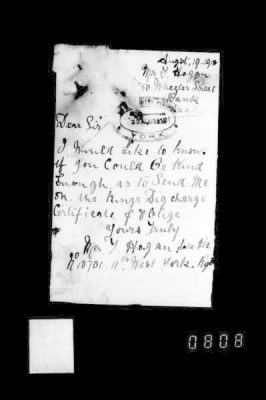 Augst. 19. 19
Mr. T. Hogan
50 Wheeler Street
Bank
Leeds
Dear Sir
YORK
I Would like to know
if You Could Be Kind
Enough, as to Send Me
on. the Kings Discharge
Certificate & Oblige
Yours Truly
Mr T. Hogan late Pte
No 10701. 11th West York. Rgt
0808